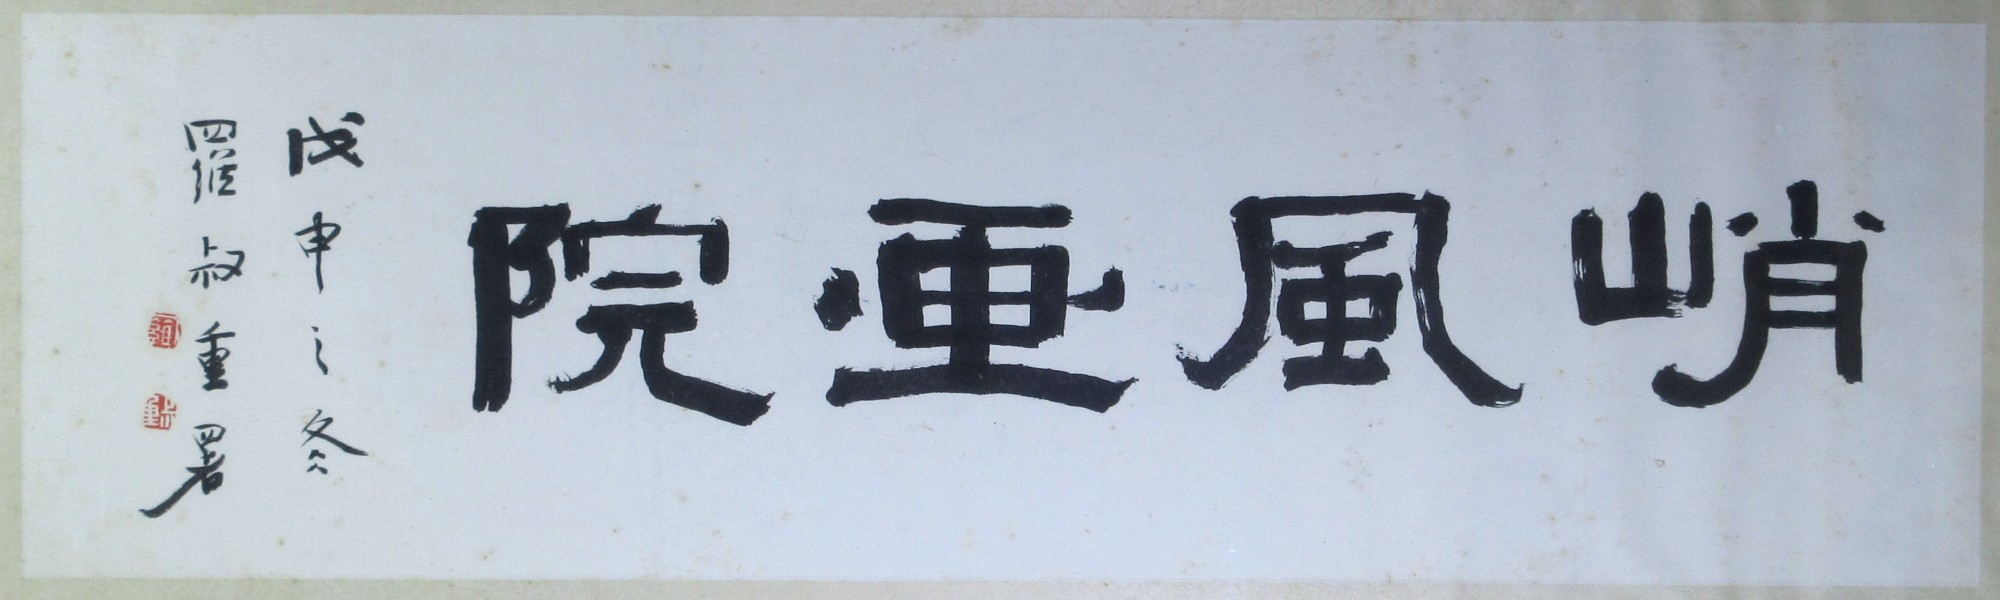 峭風亜院
戊申之冬
羅叔重署